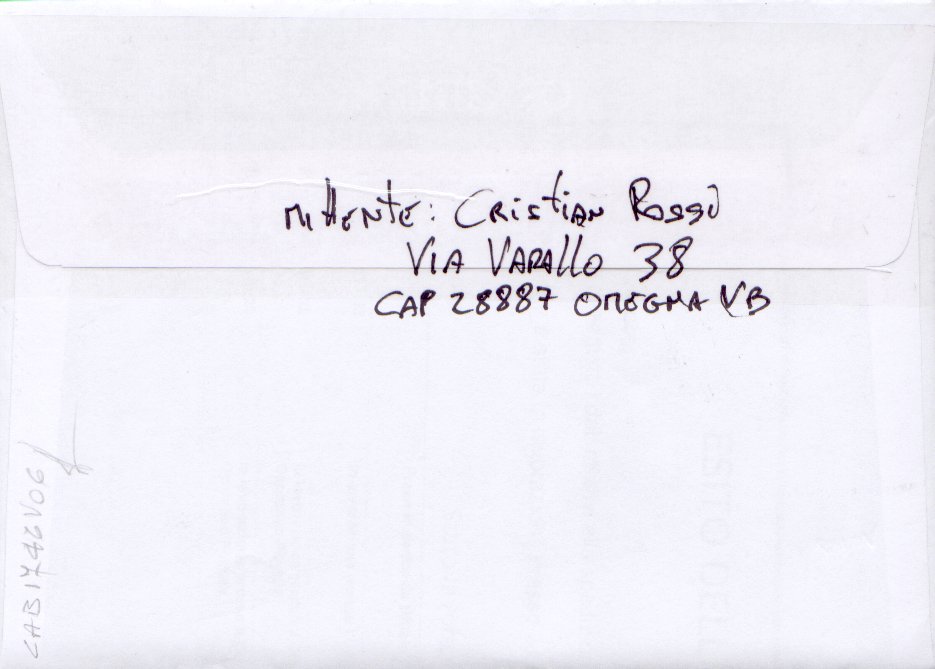 Mittente: Cristian Rossi
Via Varallo 38
CAP 28887 Omegna VB
CAB1746V06